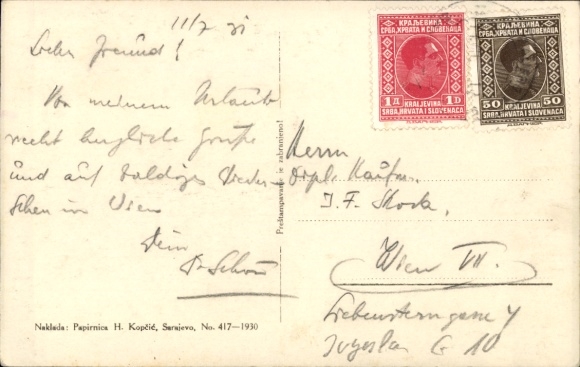 11/7 31
Lieber Freund!
Von meinem Urlaub
recht herzliche Grüße
und auf baldiges Wieder-
sehen in Wien
Dein
Naklada: Papirnica H. Kopčić, Sarajevo, No. 417—1930
Preštampavanje je zabranjeno!
КРАЉЕВИНА
СРБА, ХРВАТА И СЛОВЕНАЦА
1 Д 1 D
KRALJEVINA
SRBA, HRVATA I SLOVENACA
КРАЉЕВИНА
СРБА, ХРВАТА И СЛОВЕНАЦА
50 50
KRALJEVINA
SRBA, HRVATA I SLOVENACA
Herrn
Dipl. Kaufm.
J. F.
Wien VII.